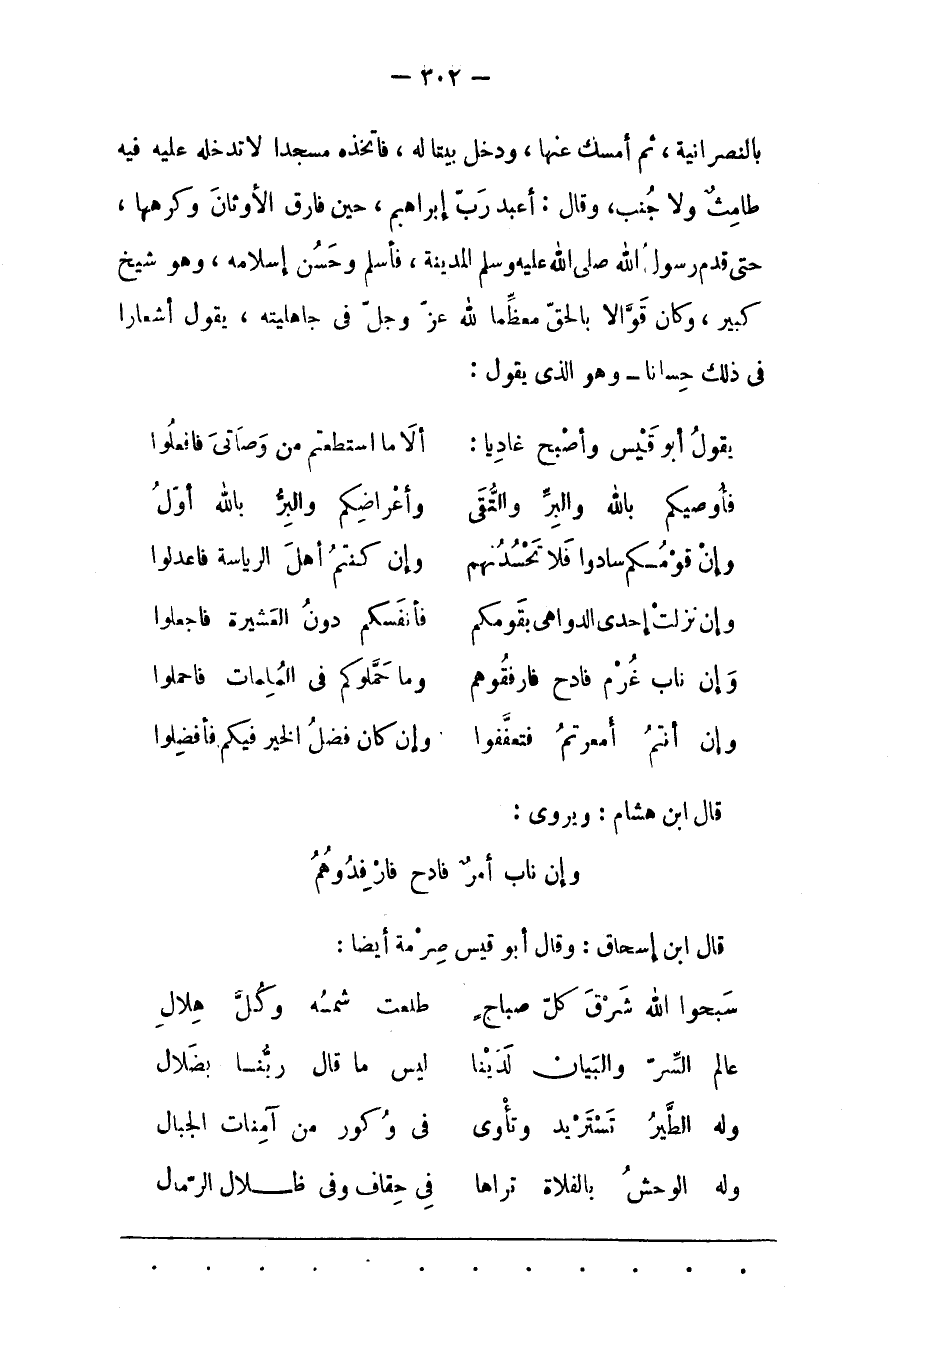 — ٣٠٢ —
بالنصرانية ، ثم أمسك عنها ، ودخل بيتا له ، فاتخذه مسجدا لا تدخله عليه فيه
طامِثٌ ولا جُنب، وقال : أعبد رَبّ إبراهيم ، حين فارق الأوثانَ وكرهها ،
حتى قدم رسولُ الله صلى الله عليه وسلم المدينة ، فأسلم وحَسُن إسلامه ، وهو شيخ
كبير ، وكان قَوَّالا بالحقّ معظِّما لله عزّ وجلّ فى جاهليته ، يقول أشعارا
فى ذلك حِسانا ــ وهو الذى يقول :
يقولُ أبو قَيْس وأصْبح غادِيا : ألَا ما استطعتم من وَصَاتىَ فافعلُوا
فأُوصيكم بالله والبِرِّ والتُّقَى وأعْراضِكم والبِرُّ بالله أوّلُ
وإنْ قوْمُـكم سادوا فَلا تَحْسُدُنهم وإن كنتمُ أهلَ الرياسة فاعدلوا
وإن نزلتْ إحدى الدواهى بقَومكم فأنفَسكم دونُ العَشيرة فاجعلوا
وَإن ناب غُرْم فادح فارفقُوهم وما حَمَّلوكم فى المُلِمات فاحملوا
وإن أنتمُ أمعرتمُ فتعفَّفوا وإن كان فضلُ الخير فيكم فأفضِلوا
قال ابن هشام : ويروى :
وإن ناب أمرٌ فادح فارْفِدُوهُمُ
قال ابن إسحاق : وقال أبو قيس صِرْمة أيضا :
سَبحوا الله شَرْقَ كلّ صباحٍ طلعت شمسُه وكُلَّ هِلالِ
عالم السِّرّ والبَيان لَدَيْنا ليس ما قال ربُّنـا بضَلال
وله الطَّيرُ تَسْتَرْيد وتأْوى فى وُكور من آمِنات الجبال
وله الوحشُ بالفلاة تراها فِى حِقاف وفى ظـلال الرّمال
. . . . . . . . . . . .